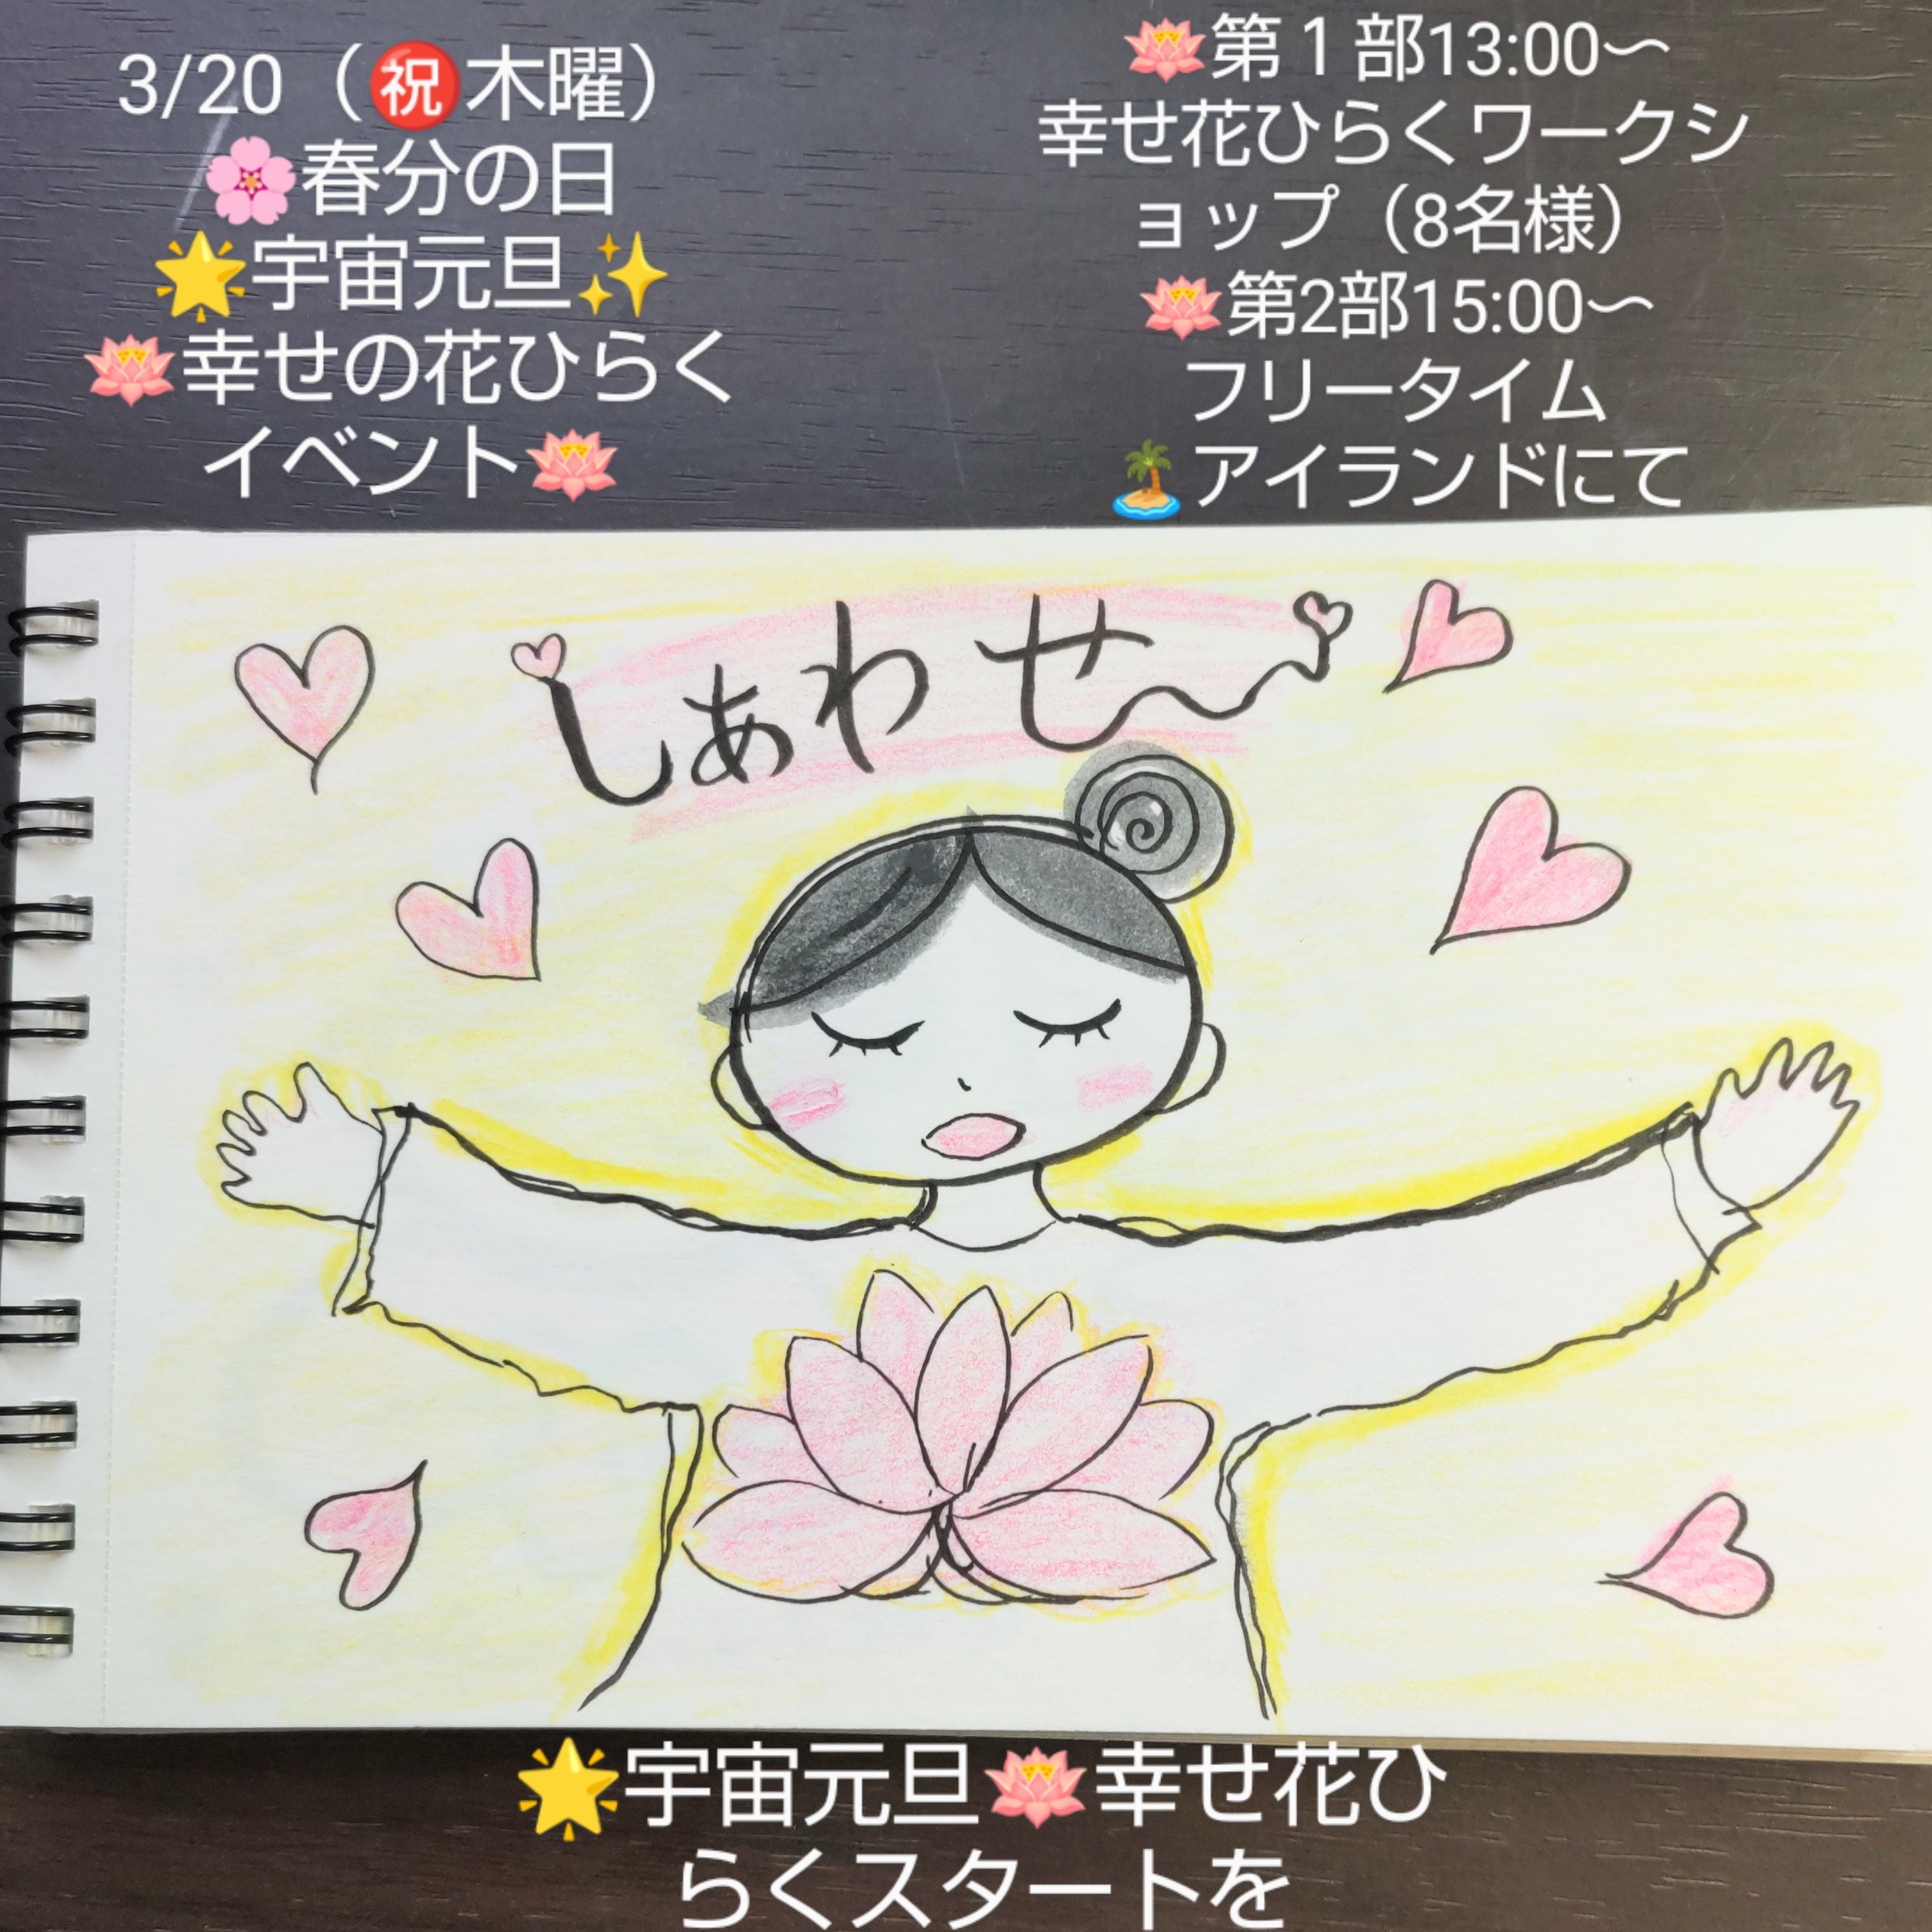 3/20（㊗️木曜）
🌸春分の日
🌟宇宙元旦✨
🪷幸せの花ひらく
イベント🪷
🪷第１部13:00〜
幸せ花ひらくワークシ
ョップ（8名様）
🪷第2部15:00〜
フリータイム
🏝️アイランドにて
しあわせ〜
🌟宇宙元旦🪷幸せ花ひ
らくスタートを